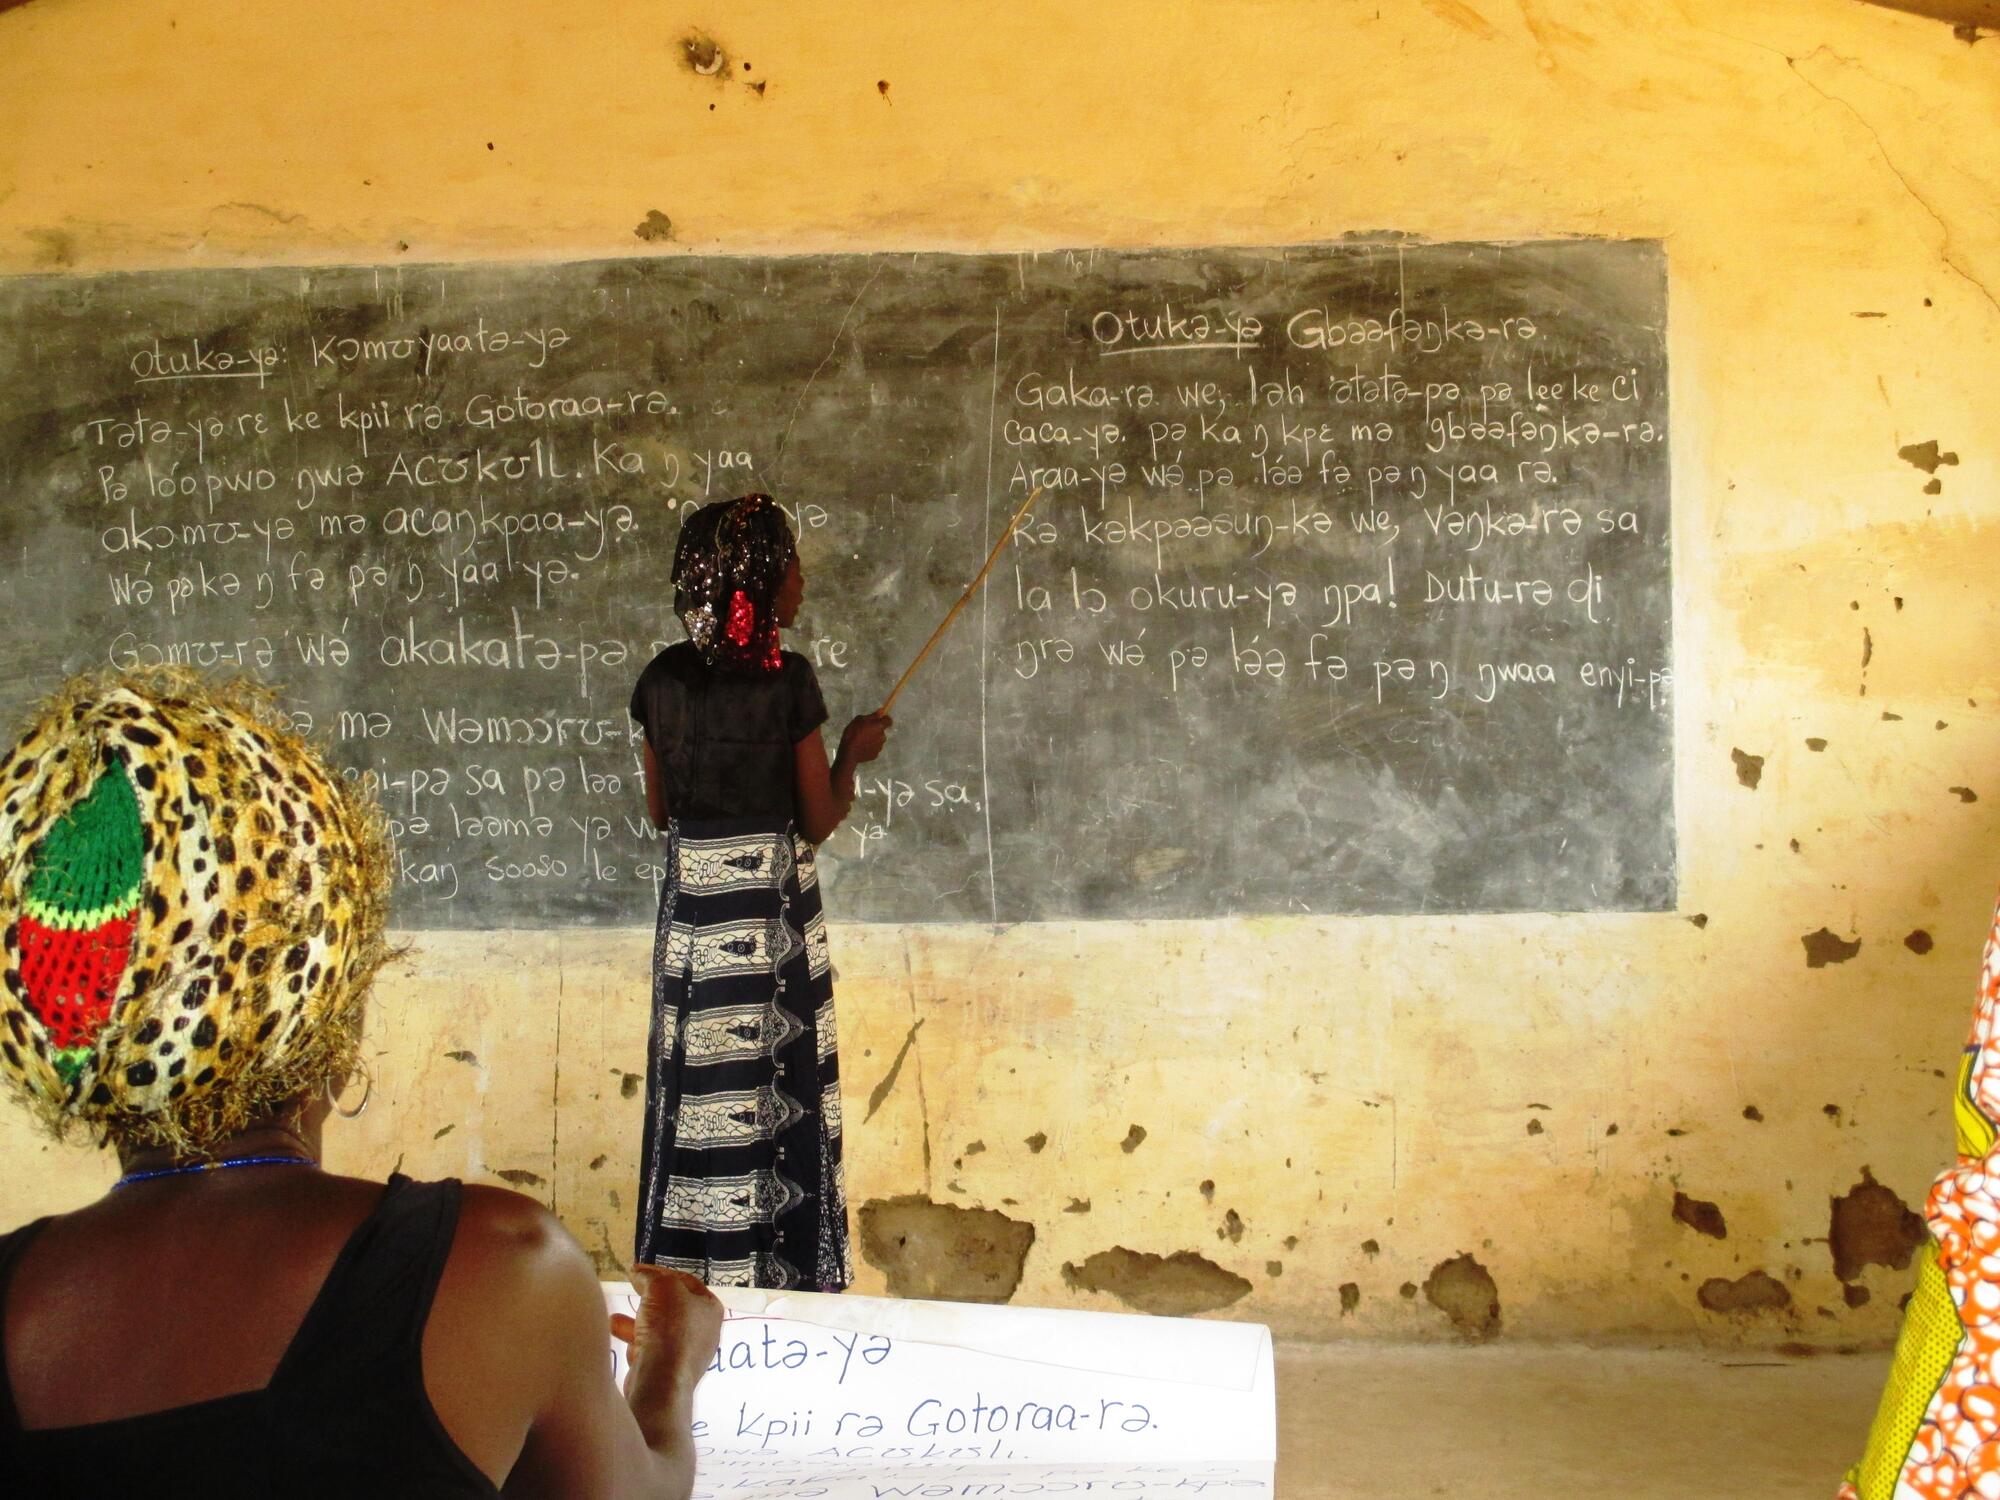 Otukə-yə: Kɔmʊyaatə-yə
Tətə-yə rɛ ke kpii rə Gotoraa-rə.
Pə lóopwo ŋwə ACƱKƱLI. Ka ŋ yaa
akɔmʊ-yə mə acaŋkpaa-yə.
Wə́ pəkə ŋ fə pə ŋ yaa yə.
Gɔmʊ-rə wə́ akakatə-pə
mə Wəmɔɔrʊ-k
pi-pə sa pə ləə
pə ləəmə yə w
kaŋ sooso le ep
Otukə-yə Gbəəfəŋkə-rə.
Gaka-rə we, ləh atətə-pə pə lee ke ci
caca-yə. pə ka ŋ kpɛ mə gbəəfəŋkə-rə.
Araa-yə wə́ pə lə́ə fə pə ŋ yaa rə.
Rə kəkpəəsuŋ-kə we, vəŋkə-rə sa
la lɔ okuru-yə ŋpa! Dutu-rə di
ŋrə wə́ pə lə́ə fə pə ŋ ŋwaa enyi-pə
aatə-yə
e kpii rə Gotoraa-rə.
ŋwə ACƱKƱLI.
mə Wəmɔɔrʊ-kpə